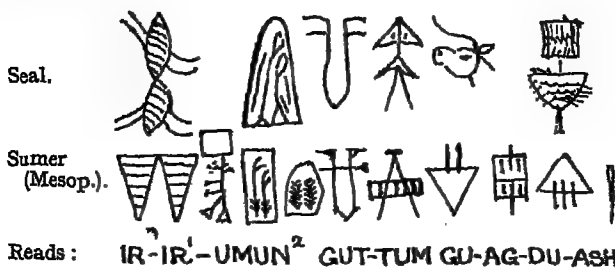 Seal.
Sumer
(Mesop.).
Reads: IR-IR¹-UMUN² GUT-TUM GU-AG-DU-ASH